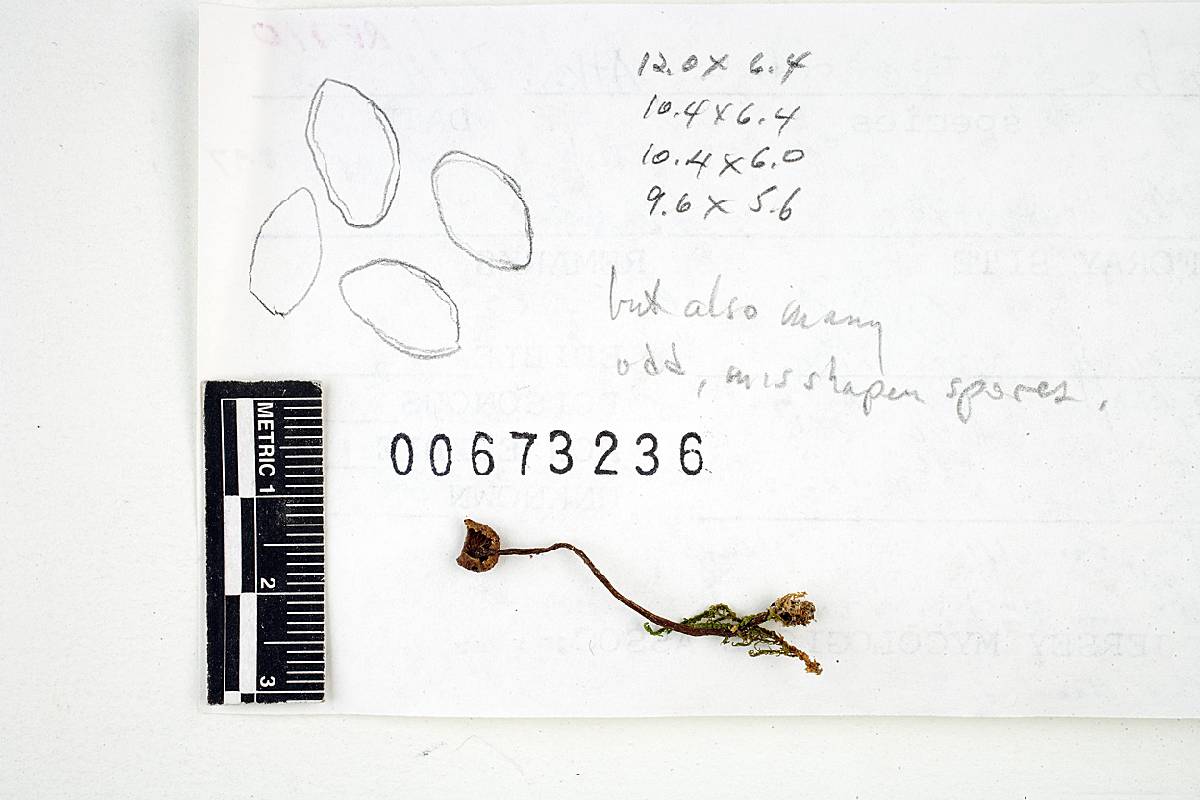 12.0 x 6.4
10.4 x 6.4
10.4 x 6.0
9.6 x 5.6
but also many
odd, misshapen spores.
00673236
METRIC 1
2
3
species
DATE
REMARKS
EDIBLE
UNKNOWN